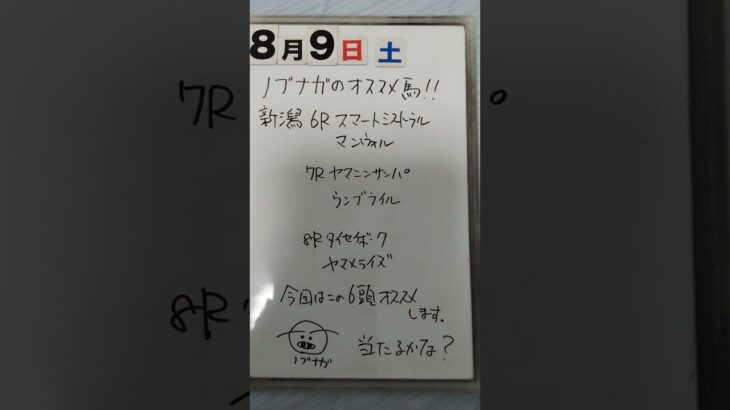 8月9日土
ノブナガのオススメ馬!!
新潟 6R スマートミストラル
マンウォル
7R ヤマニンサンパ
ランブライル
8R タイセイボーク
ヤマメライズ
今回はこの6頭オススメ
します。
当たるかな?
ノブナガ
7R
8R